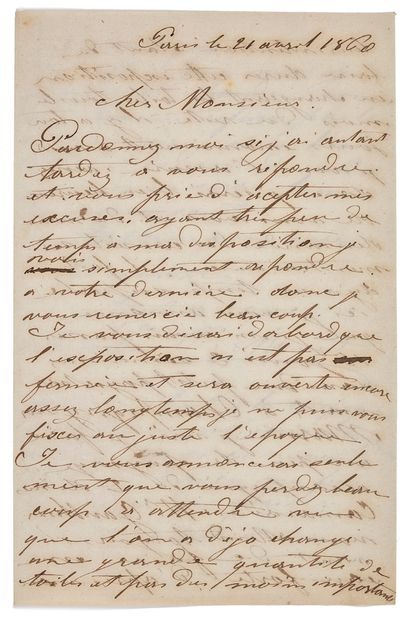 Paris le 21 avril 1860
cher Monsieur
Pardonnez moi si j'ai autant
tardez à vous repondre
et vous prie d'acepter mes
excuses. ayant tres peu de
temp à ma disposition je
vais simplement repondre
a votre derniere. donc je
vous remercie beaucoup.
Je vous dirai d'abord que
l'exposition n'est pas
fermée et sera ouverte encore
assez longtemp je ne puis vous
fixer au juste l'epoque
Je vous annoncerai seule
ment que vous perdez beau
coup à attendre vu
que l'on a dejo changé
une grande quantité de
toiles et pas des moins importantes